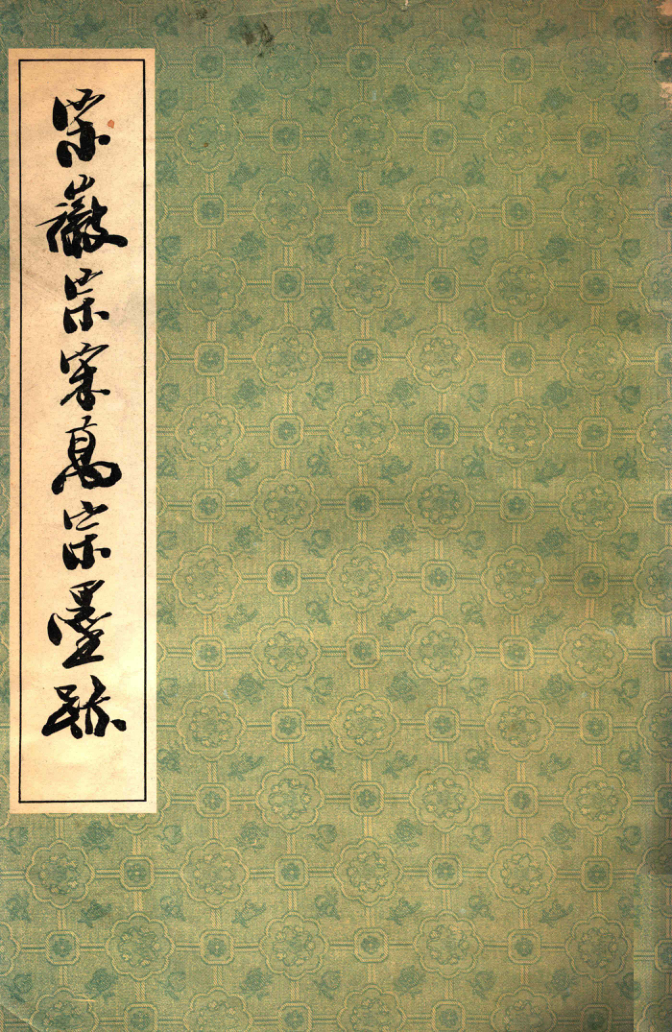 宋徽宗宋高宗墨跡